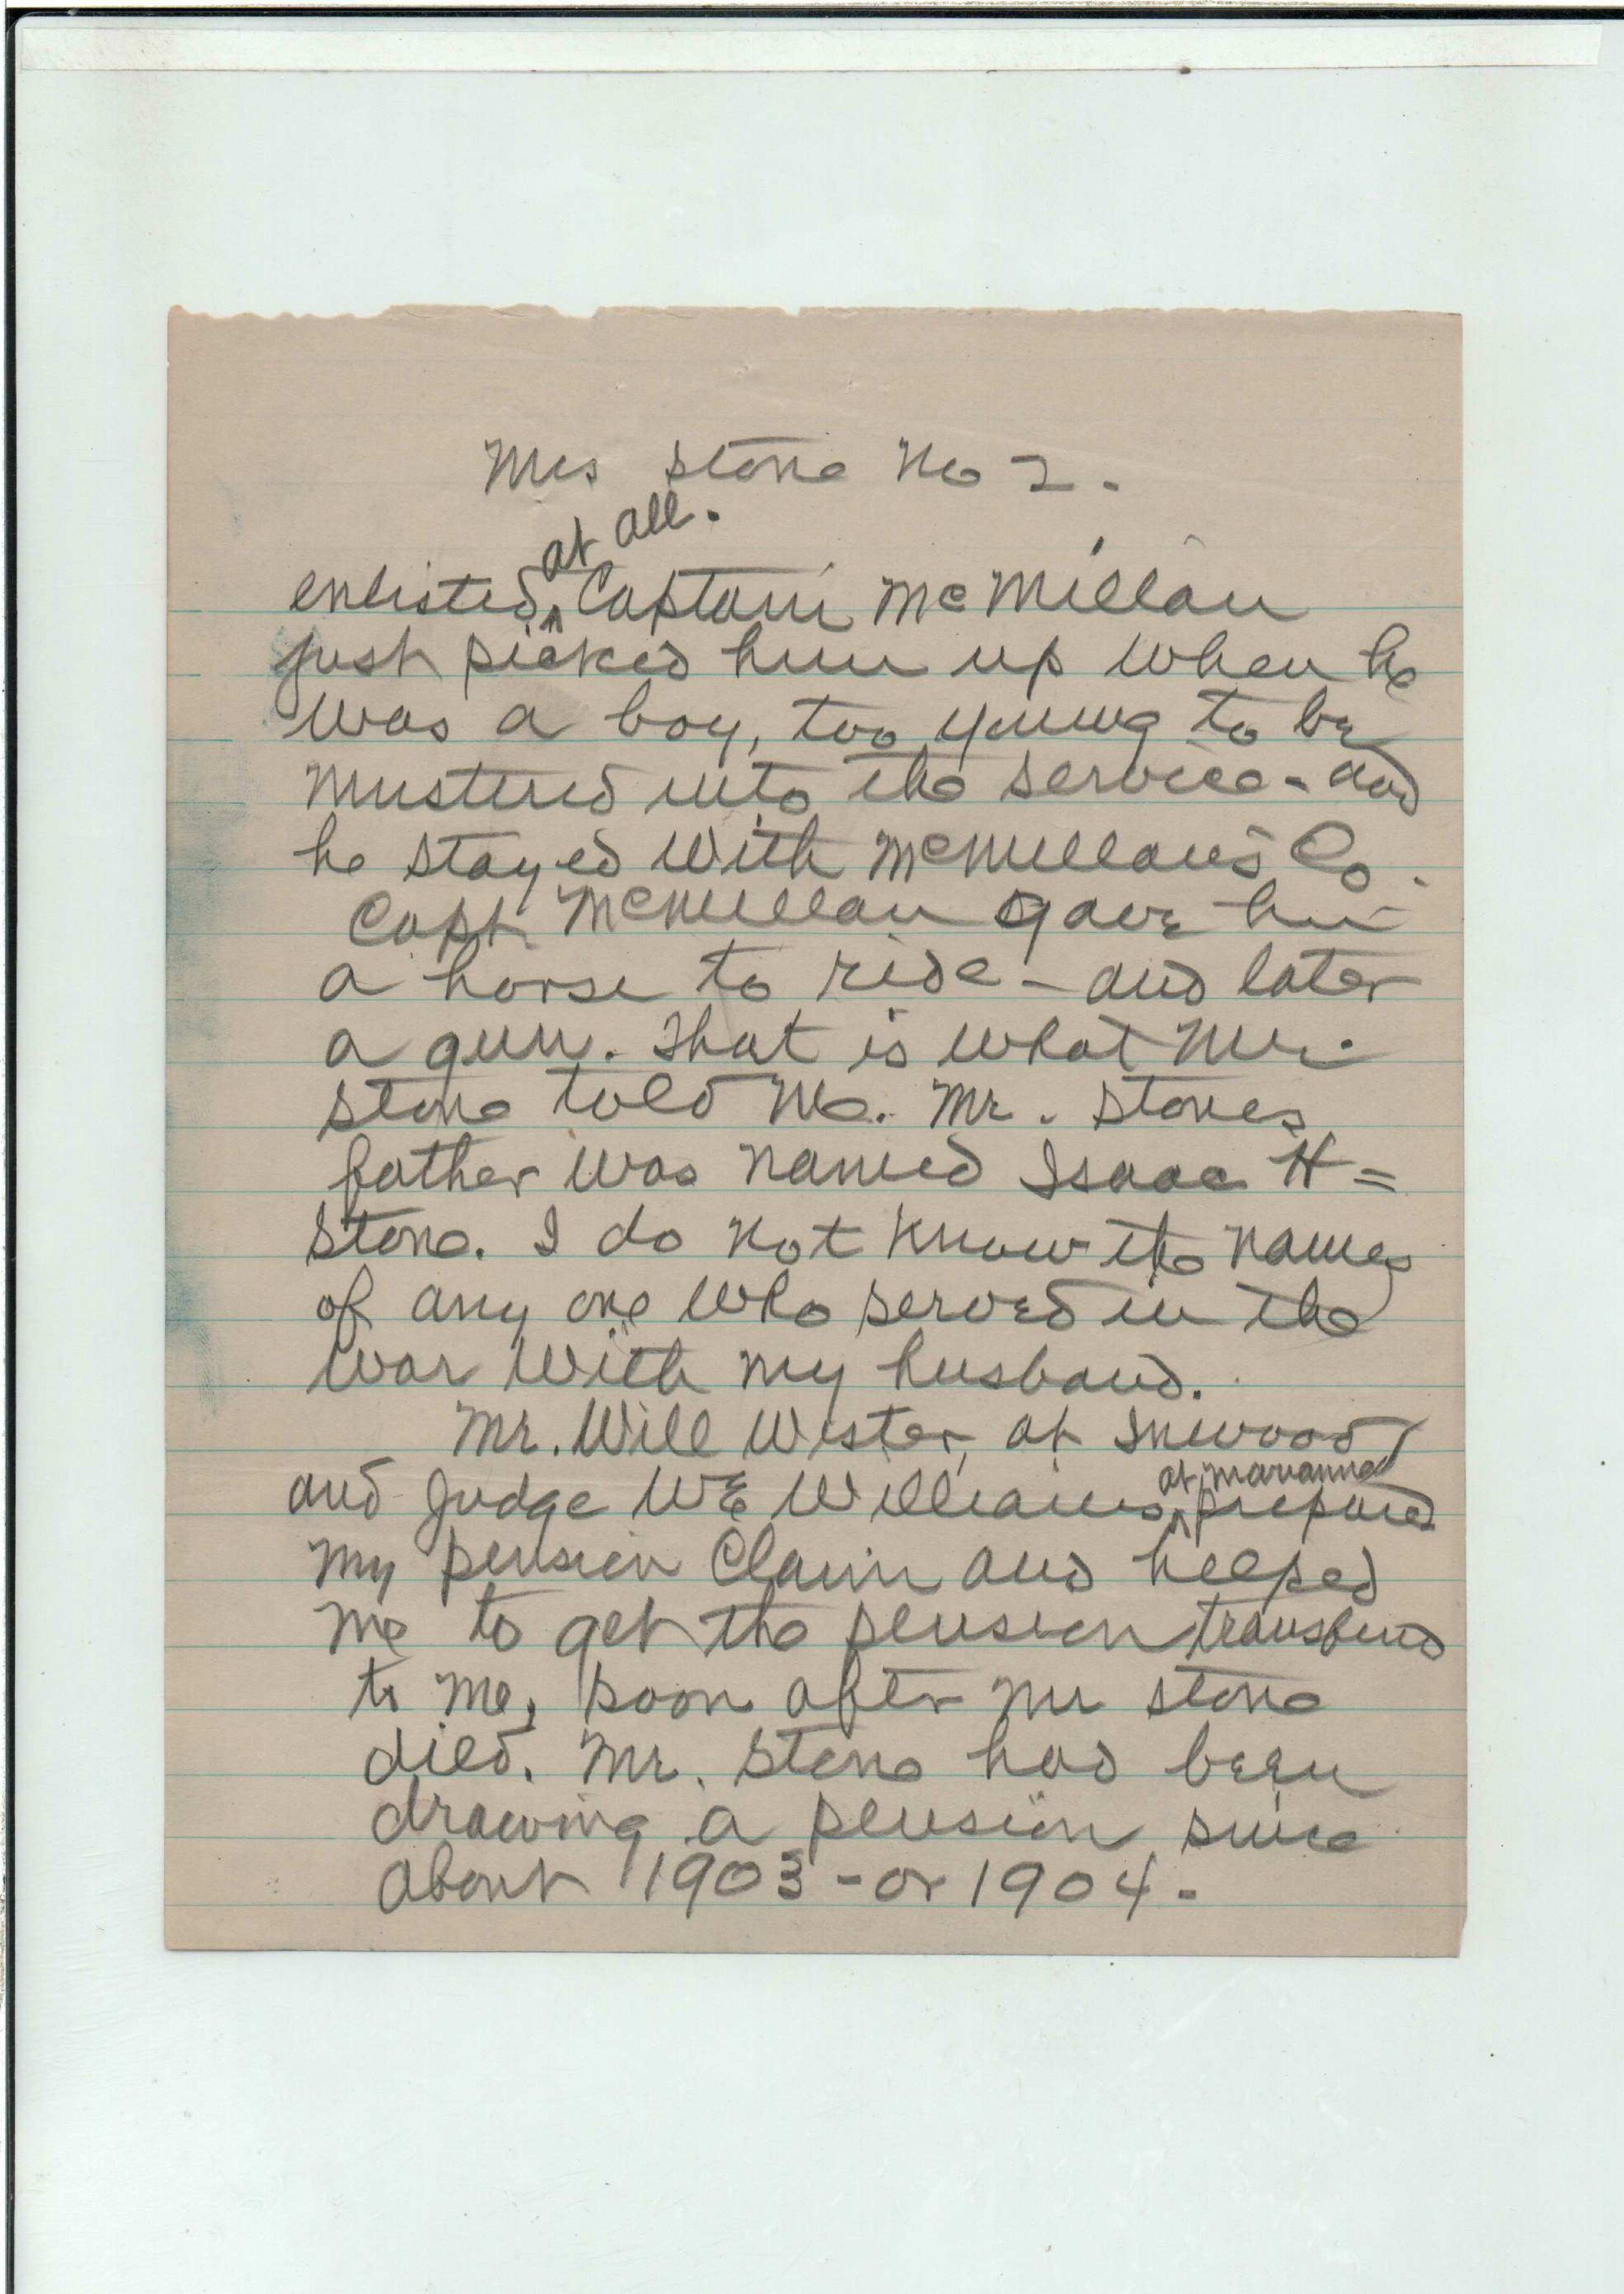 Mrs Stone No 2.
at all.
enlisted ^ Captain McMillan
just picked him up when he
was a boy, too young to be
mustered into the service - and
he stayed with McMillan's Co.
Capt McMillan gave him
a horse to ride - and later
a gun. That is what Mr.
Stone told me. Mr. Stones
father was named Isaac H =
Stone. I do not know the names
of any one who served in the
war with my husband.
Mr. Will Wester, at Inwood
at Marianna
and Judge WE Williams ^ prepared
my pension claim and helped
me to get the pension transfered
to me, soon after Mr Stone
died. Mr. Stone had been
drawing a pension since
about 1903 - or 1904.